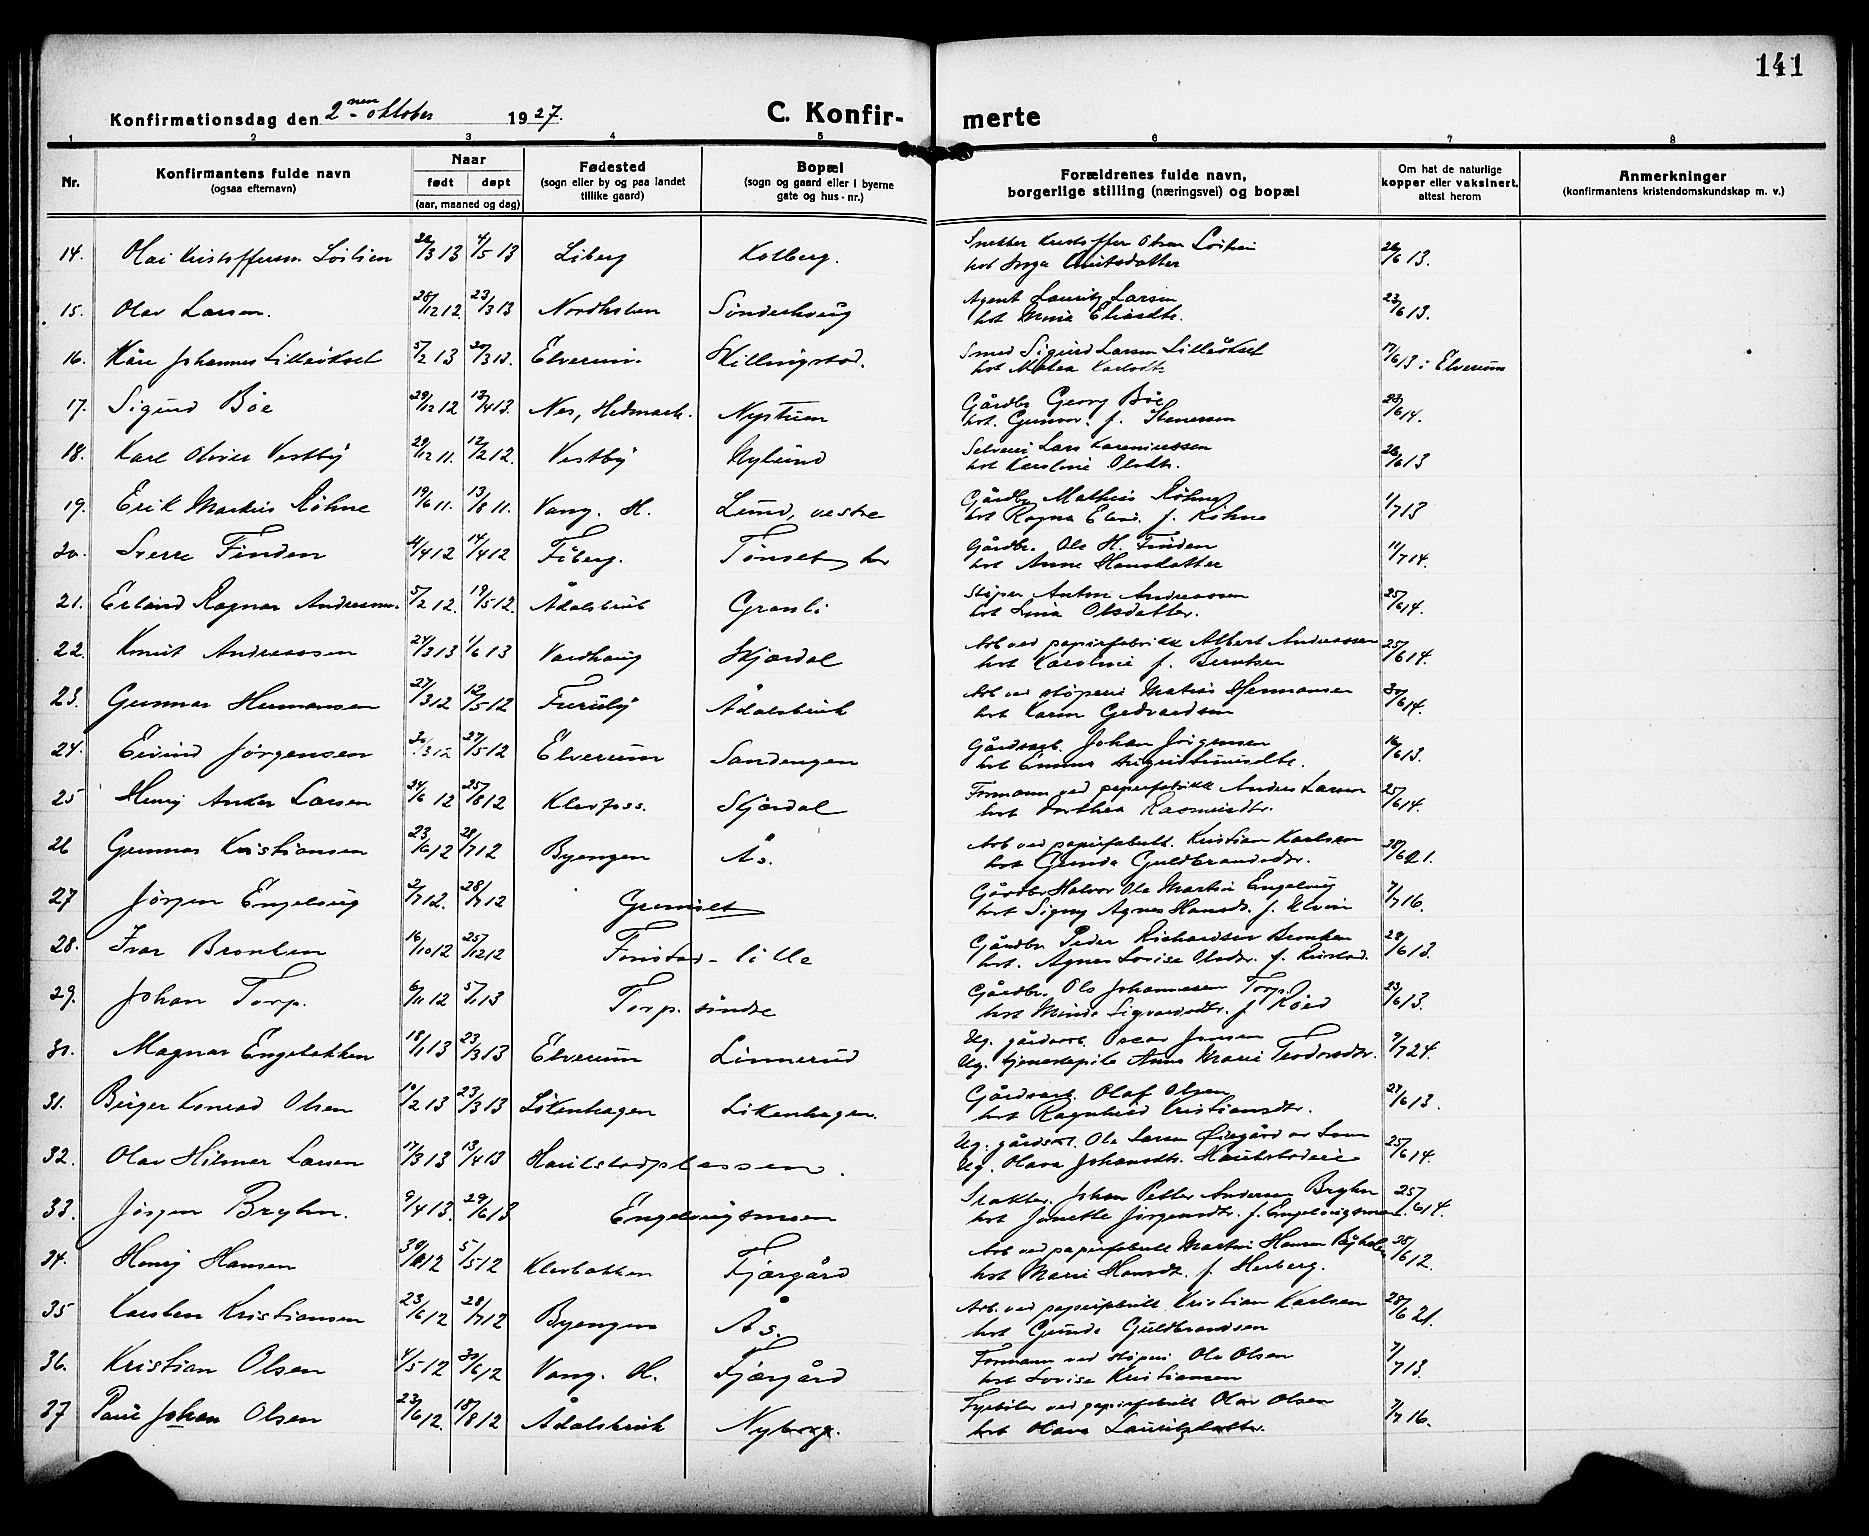 141
Konfirmationsdag den 2nen oktober 1927.
C. Konfir-
merte
1 2 3 4 5 6 7 8
Nr.
Konfirmantens fulde navn
(ogsaa efternavn)
Naar
født døpt
(aar, maaned og dag)
Fødested
(sogn eller by og paa landet
tillike gaard)
Bopæl
(sogn og gaard eller i byerne
gate og hus-nr.)
Forældrenes fulde navn,
borgerlige stilling (næringsvei) og bopæl
Om hat de naturlige
kopper eller vaksinert,
attest herom
Anmerkninger
(konfirmantens kristendomskundskap m. v.)
14. 4/5 13 Liberg Kolberg.
Snekker Kristoffer Olsen
26/6 13.
15. Olav Larsen. 28/12 12. 23/3 13 Sönderhaug
Agent Lauritz Larsen
23/6 13.
16. Kåre Johannes Lilleökset 5/2 13 20/3 13. Elverum. Hillingstad.
Smed Sigurd Larsen Lilleökset
hst Matea
17/6 13 i Elverum
17. Sigurd Böe 29/12 12 13/4 13. Nes, Hedmark. Nystuen
Gårdbr Georg Böe
hst. Gunvor f. Stenersen
23/6 14.
18. Karl Oliver Vestby 29/12 11. 12/2 12. Vestby Nylund
Selveier Lars
hst Karoline Olsdtr.
26/6 13
19. Erik Martin Röhne 19/6 11. 13/8 11. Vang. H. Lund, vestre
Gårdbr Mathias Röhne
hst Ragna f. Röhne
1/7 13
20. Sverre Finden 4/4 12 14/4 12 Fåberg. Tönset
Gårdbr. Ole H. Finden
hst Anne Hansdatter
11/7 14.
21. Erland Ragnar Andreassen. 5/2 12. 19/5 12. Ådalsbruk Granli
Stöper Anton Andreassen
hst Olsdatter.
25/6 14.
22. Knut Andreassen 24/3 13 1/6 13 Vardhaug Skjærdal
Arb ved papirfabrikk Albert Andreassen
hst Karoline f. Berntsen
25/6 14.
23. Gunnar Hermansen 27/3 12 12/5 12 Furuly Ådalsbruk
Arb ved stöperi Matias Hermansen
hst Karen Gedvardsen
30/6 14.
24. Eivind Jørgensen 3 12 27/5 12 Elverum Sandengen
Gårdsarb. Johan Jörgensen
hst Emma
16/6 13.
25 Henry Anker Larsen 24/6 12 25/8 12 Klevfoss. Skjærdal
Formann ved papirfabrikk Anders Larsen
hst Dorthea Rasmusdtr.
25/6 14.
26 Gunnar Kristiansen 23/6 12 28/7 12 Byengen Ås.
Arb ved papirfabrikk. Kristian Karlsen
hst Gunda Guldbrandsdtr.
28/6 21.
27 Jörgen Engelaug 2/7 12. 28/7 12 Grønset
Gårdbr Halvor Ole Martin Engelaug
hst Signy Agnes Hansdtr. f.
7/7 16.
28. Ivar Bronken 16/10 12 25/12 12 Finstad - lille
Gårdbr Peder Richardsen Bronken
hst. Agnes Lovise Olsdtr. f.
28/6 13.
29. Johan Torp. 6/11 12 5/1 13 Torp. söndre
Gårdbr. Ole Johannesen Torp.
hst Minda Sigvardsdtr. f
23/6 13.
30. Magnar Engebakken 18/1 13 23/3 13 Elverum Linnerud
Ug. gårdsarb. Oscar Jensen
Ug. tjenestepike Anna Marie Teodorsdtr.
9/7 24.
31. Birger Konrad Olsen 10/2 13 23/3 13 Lökenhagen Lökenhagen.
Gårdsarb. Olaf Olsen
hst Ragnhild Kristiansdtr.
27/6 13.
32. Olav Hilmar Larsen 17/3 13 13/4 13 Haukstadplassen.
Ug. gårdsarb. Ole Larsen Øiegård av Lom
Ug. Olava Johansdtr. Haukstadeie
25/6 14.
33. Jörgen Bryhn. 9/4 13. 29/6 13 Engelaugsmoen
Johan Petter Andersen Bryhn
hst Janette Jörgensdtr. f. Engelaugsmoen.
25/6 14.
34. Henry Hansen 12 5/5 12 Klevbakken Fjærgård
Arb ved papirfabrikk Martin Hansen
hst Marie Hansdt. f. Herberg.
28/6 12.
35 Karsten Kristiansen 23/6 12 28/7 12 Byengen Ås.
Arb. ved papirfabrikk Kristian Karlsen
hst Gunda Guldbrandsen
28/6 21.
36. Kristian Olsen 4/5 12 30/6 12 Vang. H. Fjærgård
Formann ved stöperi Ole Olsen
hst Lovise Kristiansen
7/7 13
37 Paul Johan Olsen 23/6 12. 18/8 12 Ådalsbruk Nyborg.
Fyrböter ved papirfabrikk Olav Olsen
hst Olava Lauritzdatter.
7/7 16.